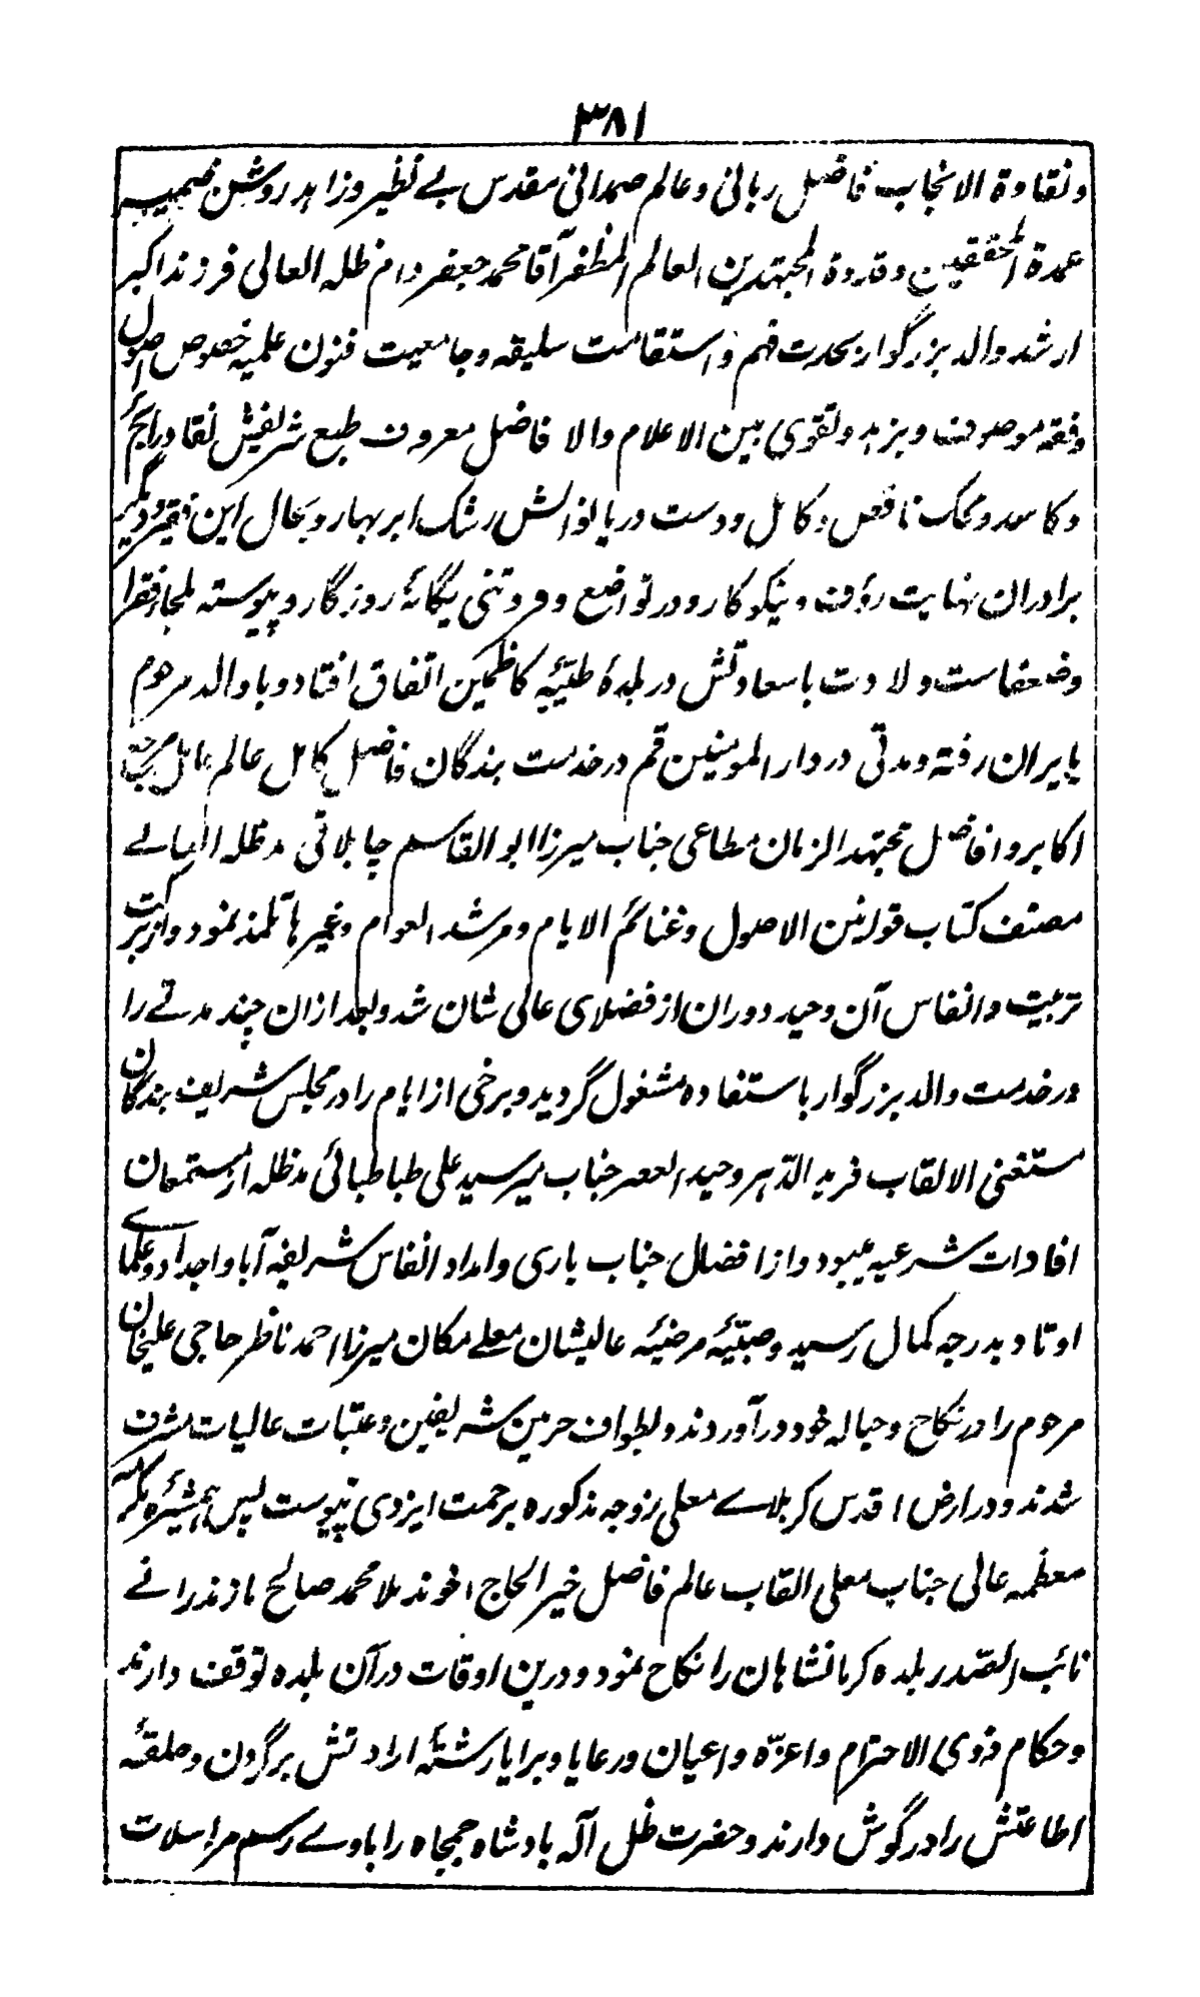 ۳۸۱
ونقاوة الانجاب فاضل ربانی وعالم صمدانی مقدس بے نظیر وزاهد روشن ضمیر
عمدة المحققین وقدوة المجتهدین العالم المظفر آقا محمد جعفر دام ظله العالی فرزند اکبر
ارشد والد بزرگوار بحدت فهم واستقامت سلیقه وجامعیت فنون علمیه خصوص اصول
وفقه موصوف وبزهد وتقوی بین الاعلام والا فاضل معروف طبع شریفش نقاد رایج
وکاسد ومحک ناقص وکامل ودست دریا نوالش رشک ابر بهار وبحال این فقیر ودیگر
برادران نهایت رؤف ونیکوکار ودر تواضع وفروتنی یگانهٔ روزگار وپیوسته ملجا فقرا
وضعفاست ولادت باسعادتش در بلدهٔ طیّبهٔ کاظمین اتفاق افتاد وبا والد مرحوم
بایران رفته ومدتی در دار المومنین قم در خدمت بندگان فاضل کامل عالم عامل مرجع
اکابر وافاضل مجتهد الزمان مطاعی جناب میرزا ابو القاسم چاپلاقی مدظله العالے
مصنف کتاب قوانین الاصول وغنائم الایام ومرشد العوام وغیرها تلمذ نمود واز برکت
تربیت وانفاس آن وحید دوران از فضلای عالی شان شد وبعد ازان چند مدتے را
در خدمت والد بزرگوار باستفاده مشغول گردید وبرخی از ایام را در مجلس شریف بندگان
مستغنی الالقاب فرید الدّهر وحید العصر جناب میر سید علی طباطبائی مدظله از مستمعان
افادات شرعیه میبود واز افضال جناب باری وامداد انفاس شریفه آبا واجداد وعلمای
اوتاد بدرجه کمال رسید وصبیّهٔ مرضیهٔ عالیشان معلے مکان میرزا احمد ناظر حاجی علیخان
مرحوم را در نکاح وحباله خود درآوردند وبطواف حرمین شریفین وعتبات عالیات مشرف
شدند ودر ارض اقدس کربلاے معلی زوجه مذکوره برحمت ایزدی پیوست پس همشیرهٔ مکرّمه
معظمه عالی جناب معلی القاب عالم فاضل خیر الحاج اخوند ملا محمد صالح مازندرانے
نائب الصّدر بلده کرمانشاهان را نکاح نمود ودرین اوقات درآن بلده توقف دارند
وحکام ذوی الاحترام واعزّه واعیان ورعایا وبرایا رشتهٔ ارادتش برگردن وحلقهٔ
اطاعتش را در گوش دارند وحضرت ظل اله بادشاه جمجاه را باوے رسم مراسلات